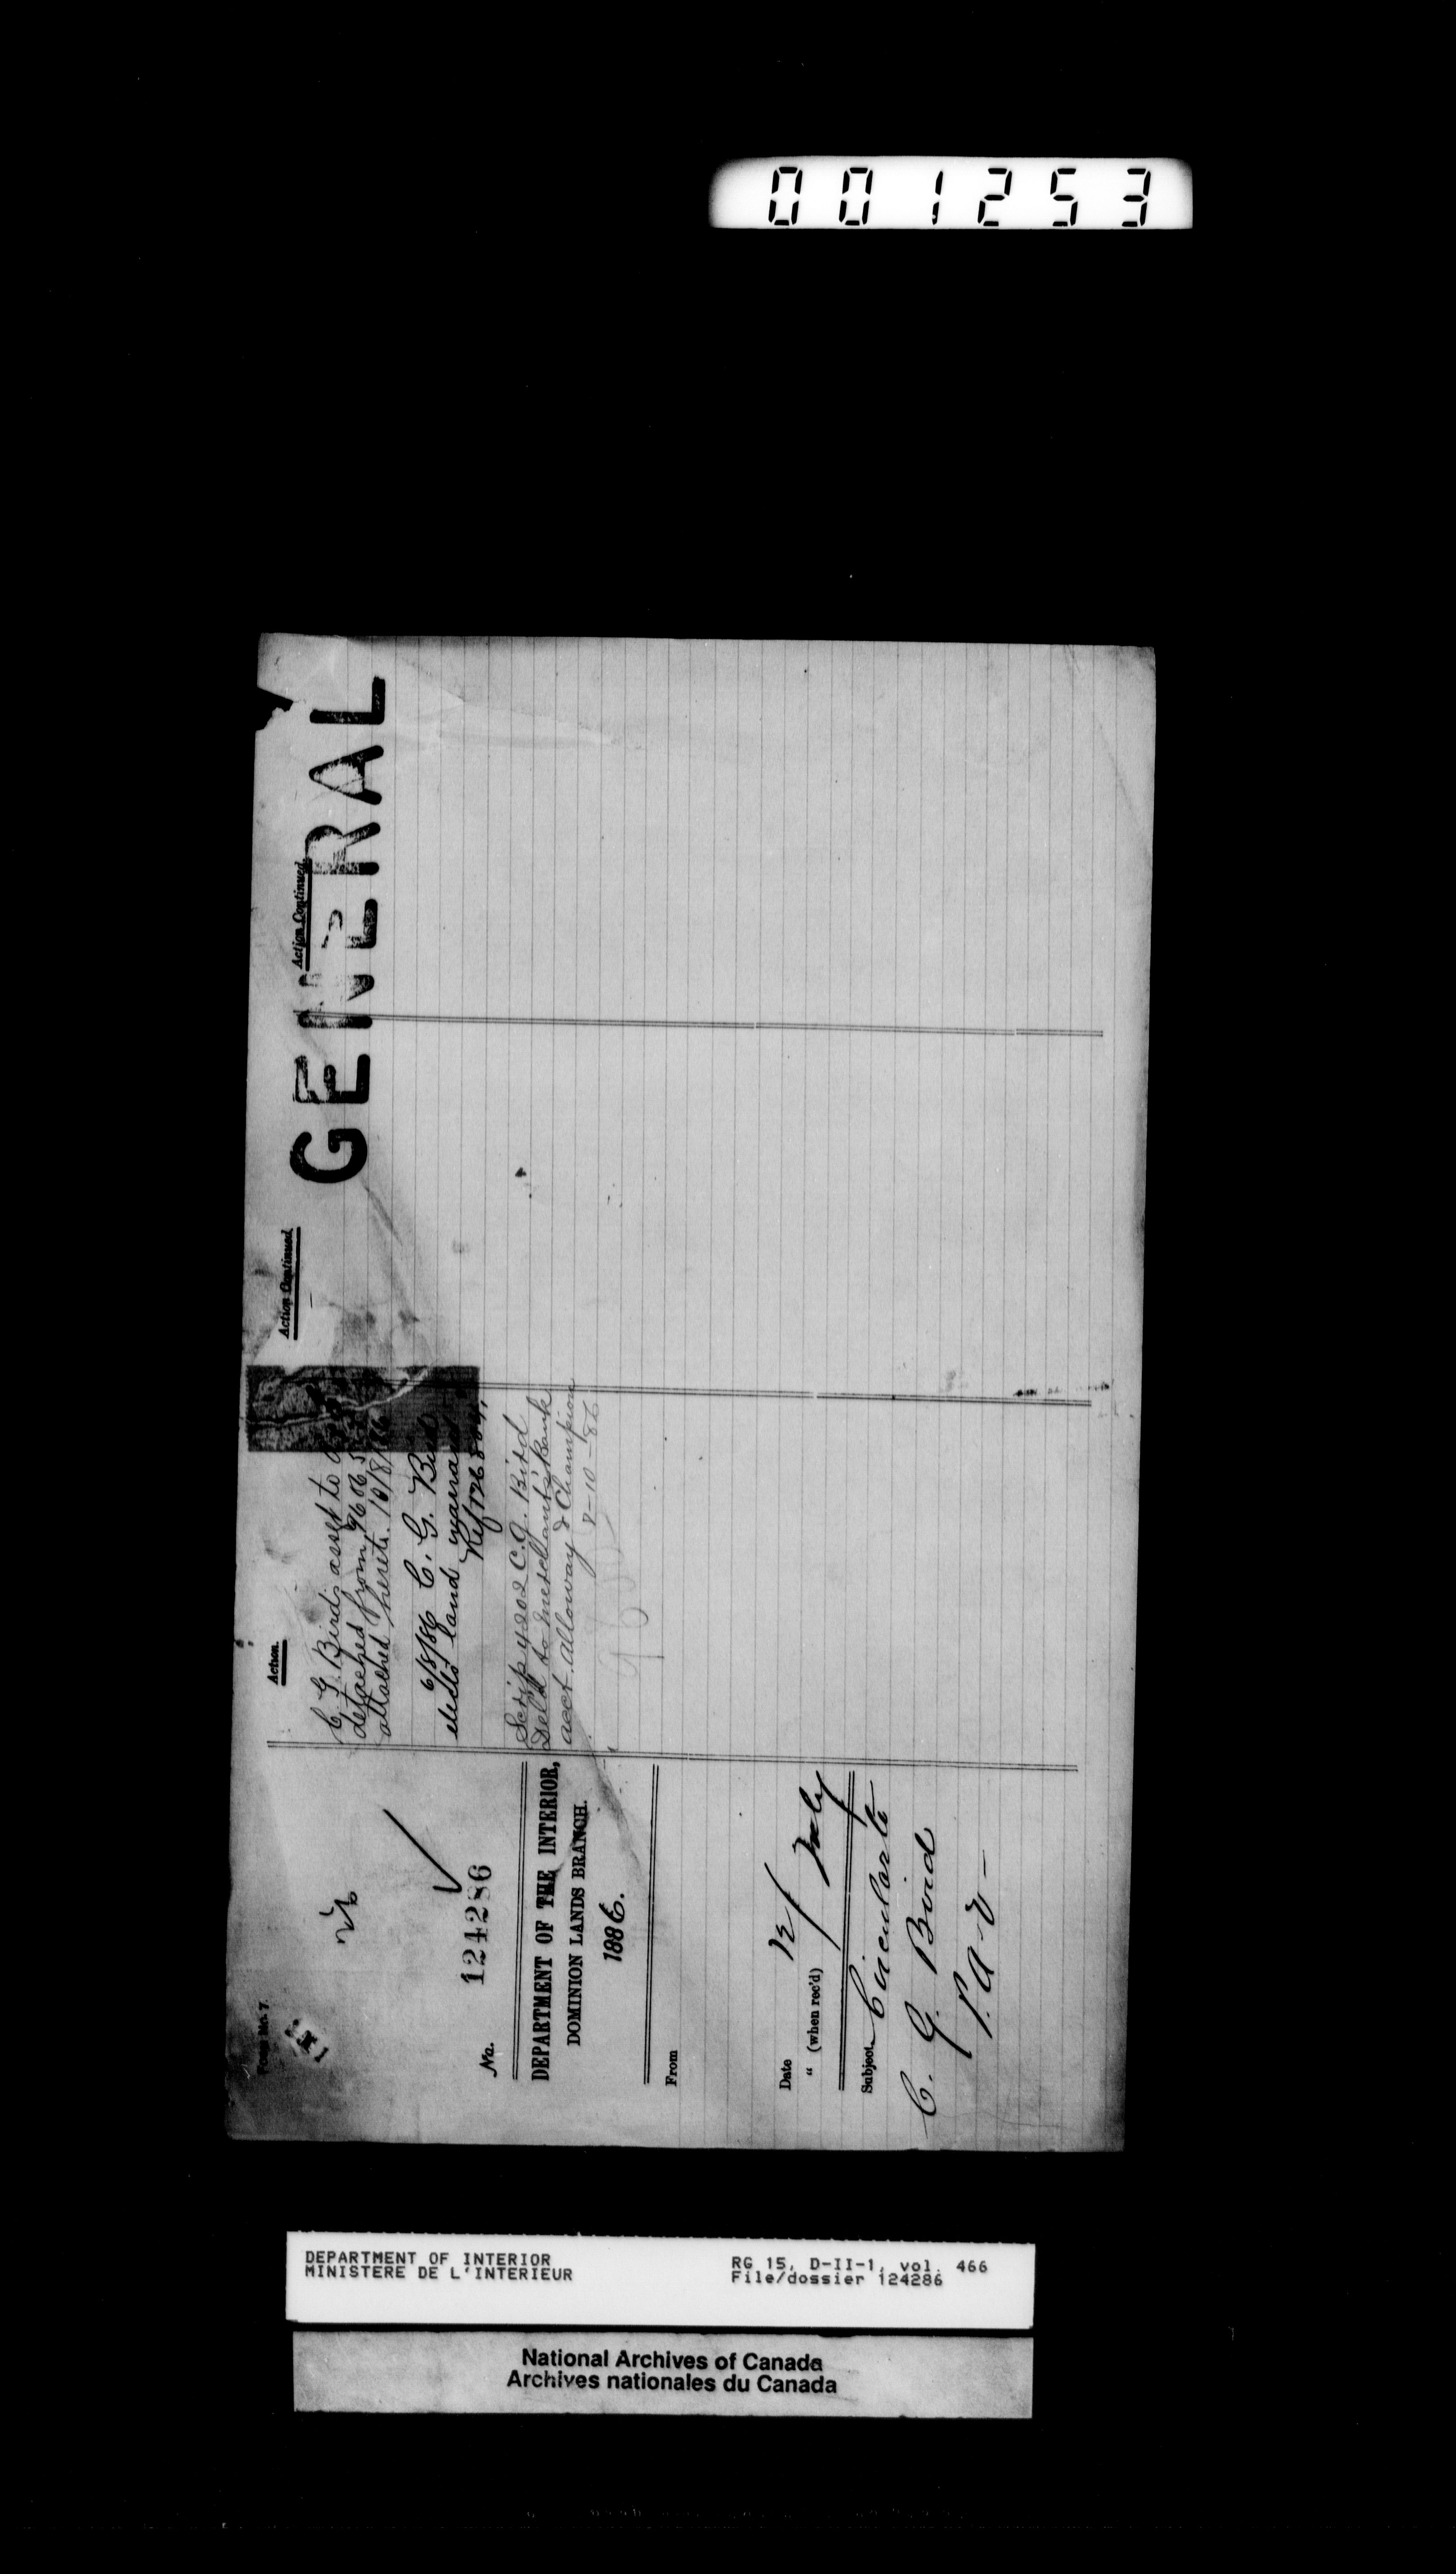 001253
GENERAL
Form No. 7.
No. 124286
DEPARTMENT OF THE INTERIOR,
DOMINION LANDS BRANCH.
1886.
From
Date 12/
" (when rec'd) July
Subject. Circular to
C. G. Bird
P. A. V -
Action.
C. G. Bird: asset to
detached from 96065
attached hereto. 10/8/86
6/8/86 C. G. Bird
elects land warrant
Ref 126
Scrip 4202 C.G. Bird
Deld to Merchants Bank
acct. Alloway & Champion
8-10-86
Action Continued.
Action Continued.
DEPARTMENT OF INTERIOR
MINISTERE DE L'INTERIEUR
RG 15, D-II-1, vol. 466
File/dossier 124286
National Archives of Canada
Archives nationales du Canada